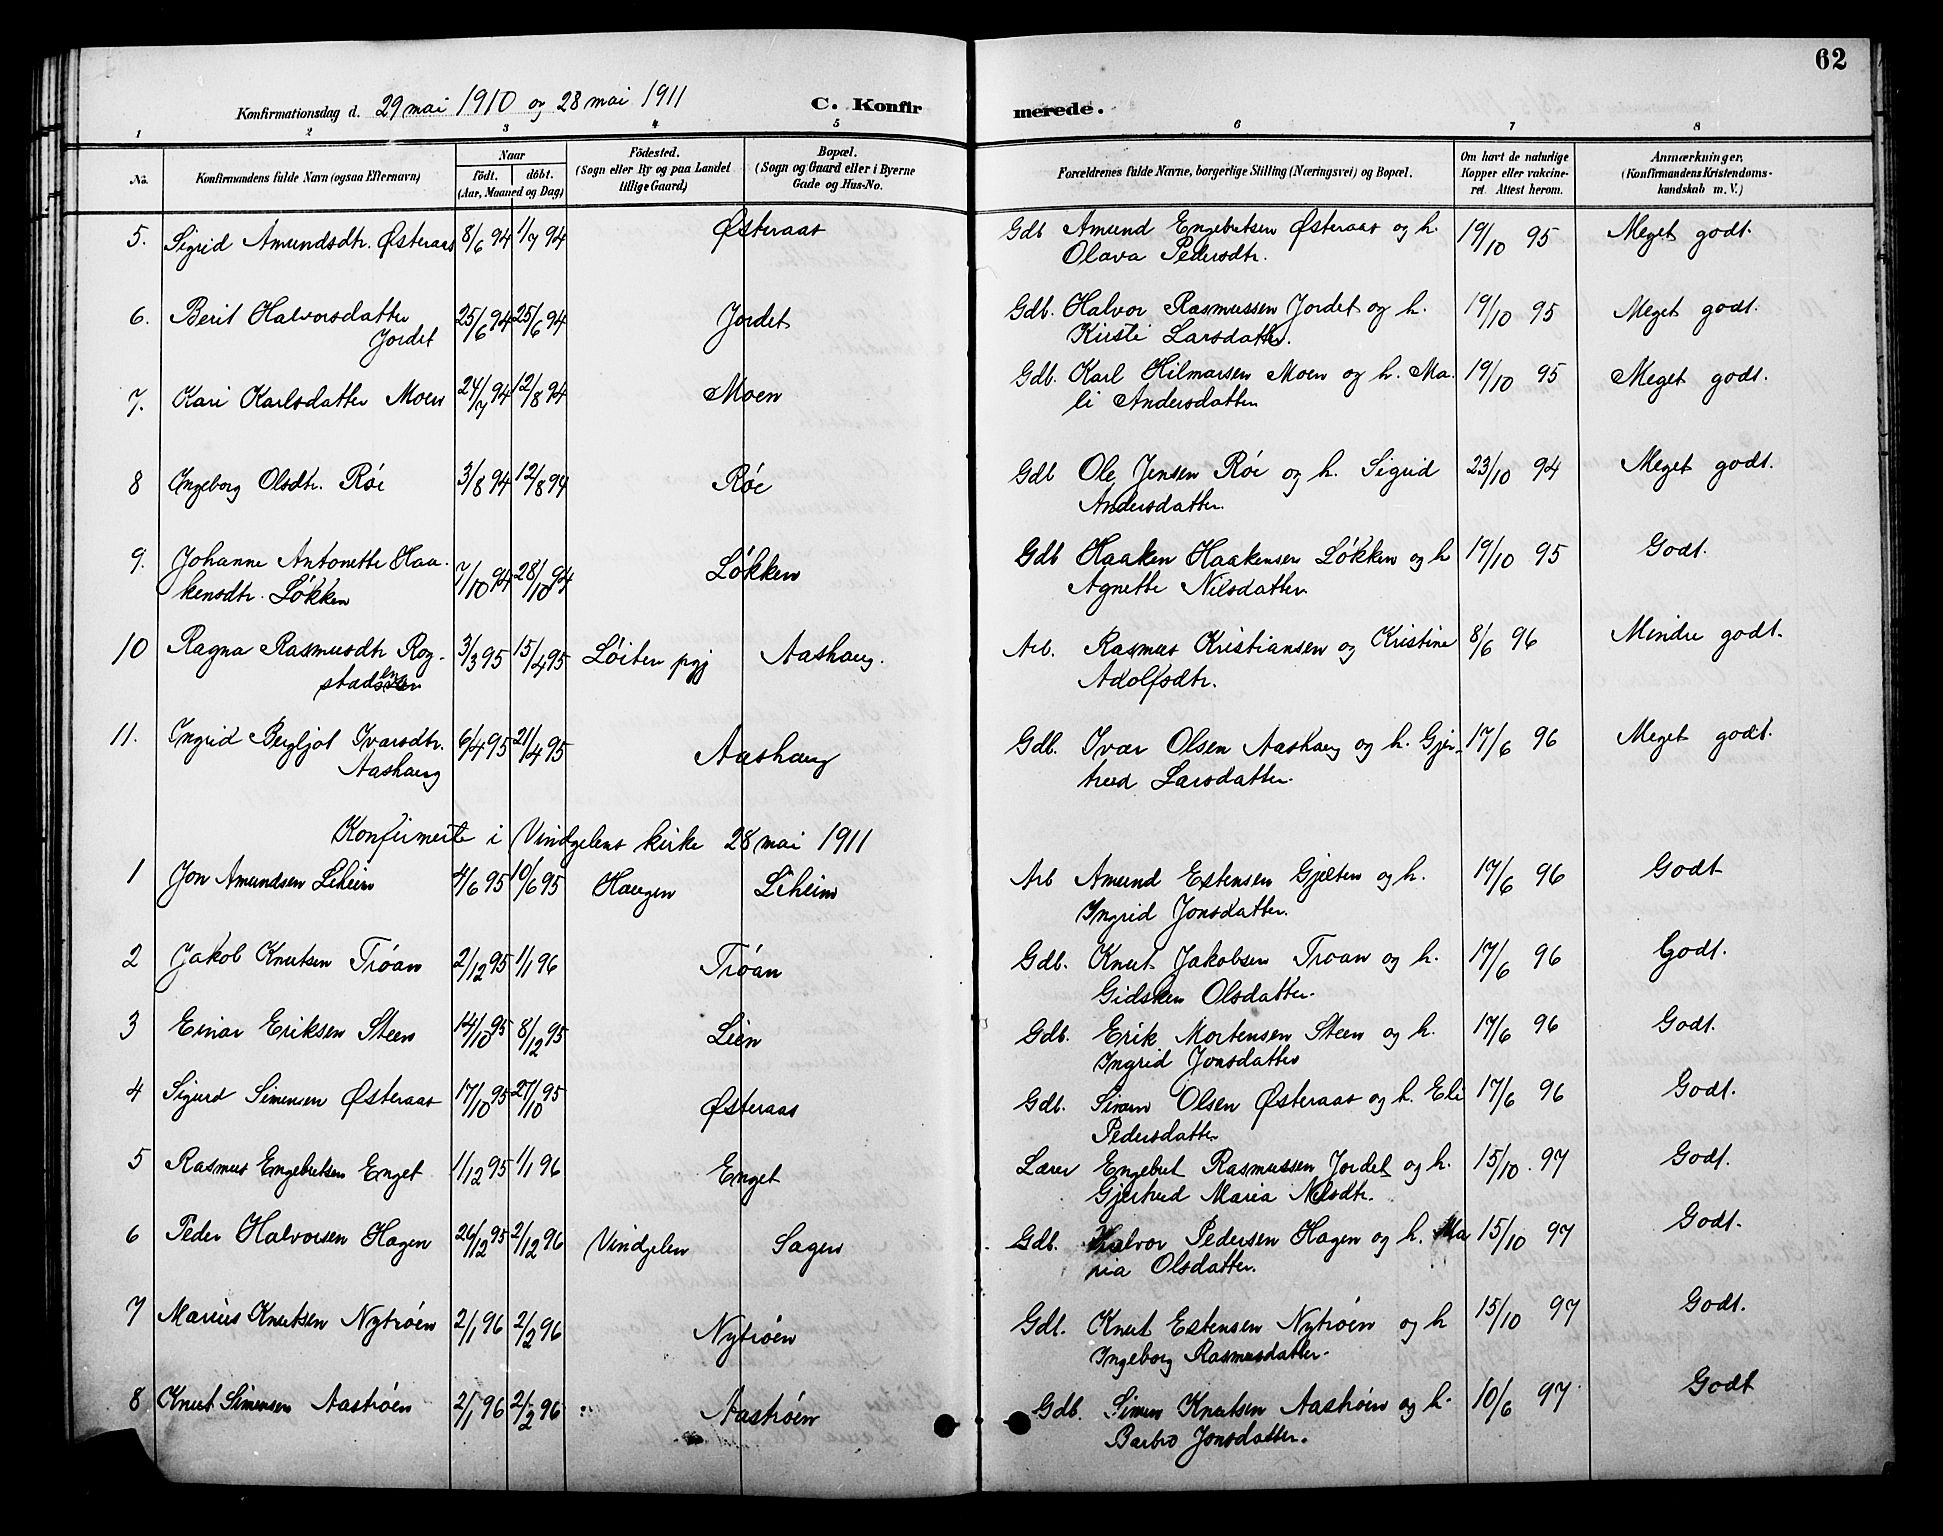 62
Konfirmationsdag d. 29 mai 1910 og 28 mai 1911 C. Konfirmerede.
1 2 3 4 5 6 7 8
No. Konfirmandens fulde Navn (ogsaa Efternavn) Naar födt. döbt. (Aar, Maaned og Dag) Födested. (Sogn eller By og paa Landet tillige Gaard) Bopæl. (Sogn og Gaard eller i Byerne Gade og Hus-No. Forældrenes fulde Navne, borgerlige Stilling (Næringsvei) og Bopæl. Om havt de naturlige Kopper eller vakcineret. Attest herom. Anmærkninger, (Konfirmandens Kristendomskundskab m. V.)
5. Sigrid Amundsdtr. Østeraas 8/6 94 1/7 94 Østeraas Gdb Amund Engebretsen Østeraas og h. 19/10 95 Meget godt.
Olava Pedersdtr.
6. Berit Halvorsdatter 25/6 94 25/6 94 Jordet Gdb. Halvor Rasmussen Jordet og h. 19/10 95 Meget godt.
Jordet Kirsti Larsdatter.
7. Kari Karlsdatter Moen 24/7 94 12/8 94 Moen Gdb. Karl Hilmarsen Moen og h. Ma- 19/10 95 Meget godt.
li Andersdatter
8 Ingeborg Olsdtr. Röe 3/8 94 12/8 94 Röe Gdb Ole Jensen Röe og h. Sigrid 23/10 94 Meget godt.
Andersdatter.
9. Johanne Antonette Haa- 7/10 94 28/10 94 Løkken Gdb Haaken Haakensen Løkken og h 19/10 95 Godt.
kensdtr. Løkken Agnette Nilsdatter
10 Ragna Rasmusdtr Rog- 3/3 95 15/4 95 Löiten pgj Aashaug. Arb. Rasmus Kristiansen og Kristine 8/6 96 Mindre godt.
Adolfsdtr.
11. Ingrid Bergljot Ivarsdtr. 6/4 95 21/4 95 Aashaug Gdb. Ivar Olsen Aashaug og h. Gjer- 17/6 96 Meget godt.
Aashaug trud Larsdatter.
Konfirmerte i Vindgelens kirke 28 mai 1911
1 Jon Amundsen Liheim 4/6 95 10/6 95 Haugen Liheim Arb Amund Estensen Gjelten og h. 17/6 96 Godt
Ingrid Jonsdatter.
2 Jakob Knutsen Tröan 2/12 95 1/1 96 Tröan Gdb. Knut Jakobsen Troan og h. 17/6 96 Godt.
Gidsken Olsdatter.
3 Einar Eriksen Steen 14/10 95 8/12 95 Lien Gdb. Erik Mortensen Steen og h. 17/6 96 Godt.
Ingrid Jonsdatter
4 Sigurd Simensen Østeraas 17/10 95 27/10 95 Østeraas Gdb. Simen Olsen Østeraas og h. Eli 17/6 96 Godt.
Pedersdatter
5 Rasmus Engebretsen Enget 1/12 95 1/1 96 Enget Lærer Engebret Rasmussen Jordet og h. 15/10. 97 Godt.
Gjertrud Maria Nilsdtr.
6 Peder Halvorsen Hagen 26/12 95 2/12 96 Vindgelen Sagen Gdb. Halvor Pedersen Hagen og h. Ma 15/10 97 Godt.
ria Olsdatter.
7 Marius Knutsen Nytröen 2/1 96 2/2 96 Nytröen Gdb. Knut Estensen Nytröen og h 15/10 97 Godt.
Ingeborg Rasmusdatter.
8 Knut Simensen Aaströen 2/1 96 2/2 96 Aaströen Gdb. Simen Knutsen Aaströen og h. 10/6 97 Godt
Barbro Jonsdatter.